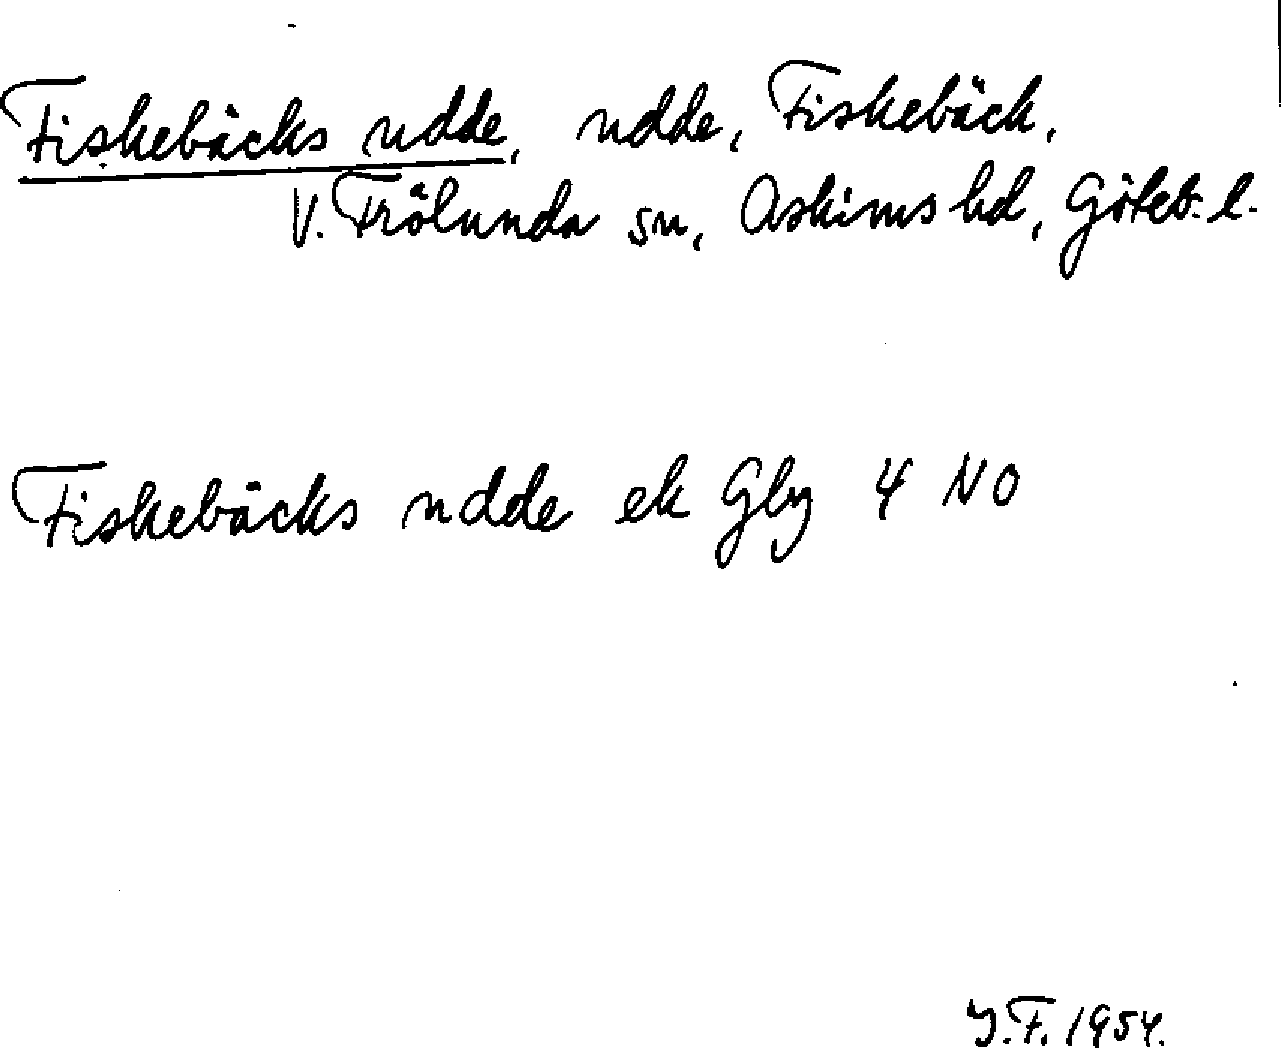 Fiskebäcks udde, udde, Fiskebäck,
V. Frölunda sn, Askims hd, Göteb. l.
Fiskebäcks udde ek Gbg 4 NO
Y.F. 1954.